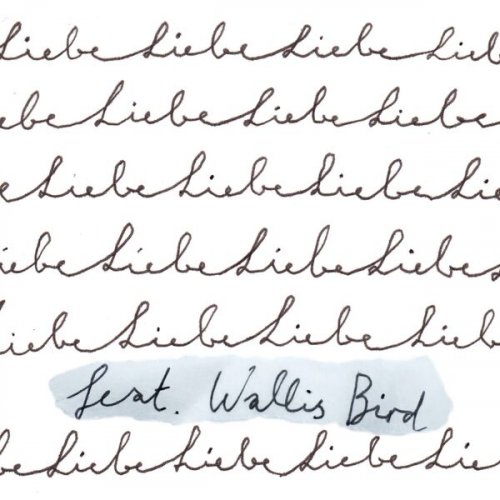 Liebe Liebe Liebe Liebe
ebe Liebe Liebe Liebe
e Liebe Liebe Liebe Lie
iebe Liebe Liebe Liebe
Liebe Liebe Liebe Liebe
feat. Wallis Bird
be Liebe Liebe Liebe Liebe